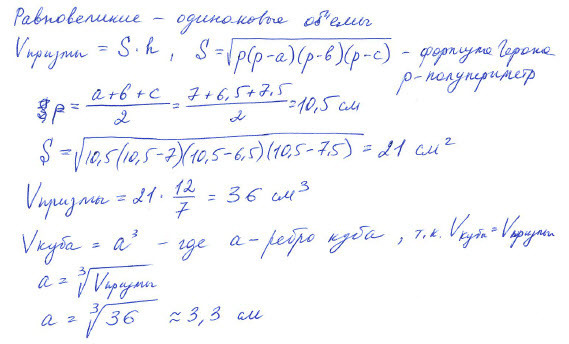 Равновеликие – одинаковые объемы
Vпризмы = S·h, S = √(p(p-a)(p-b)(p-c)) – формула Герона
p – полупериметр
p = (a+b+c)/2 = (7+6,5+7,5)/2 = 10,5 см
S = √(10,5(10,5-7)(10,5-6,5)(10,5-7,5)) = 21 см²
Vпризмы = 21 · 12/7 = 36 см³
Vкуба = a³ – где a – ребро куба, т.к. Vкуба = Vпризмы
a = ∛Vпризмы
a = ∛36 ≈ 3,3 см